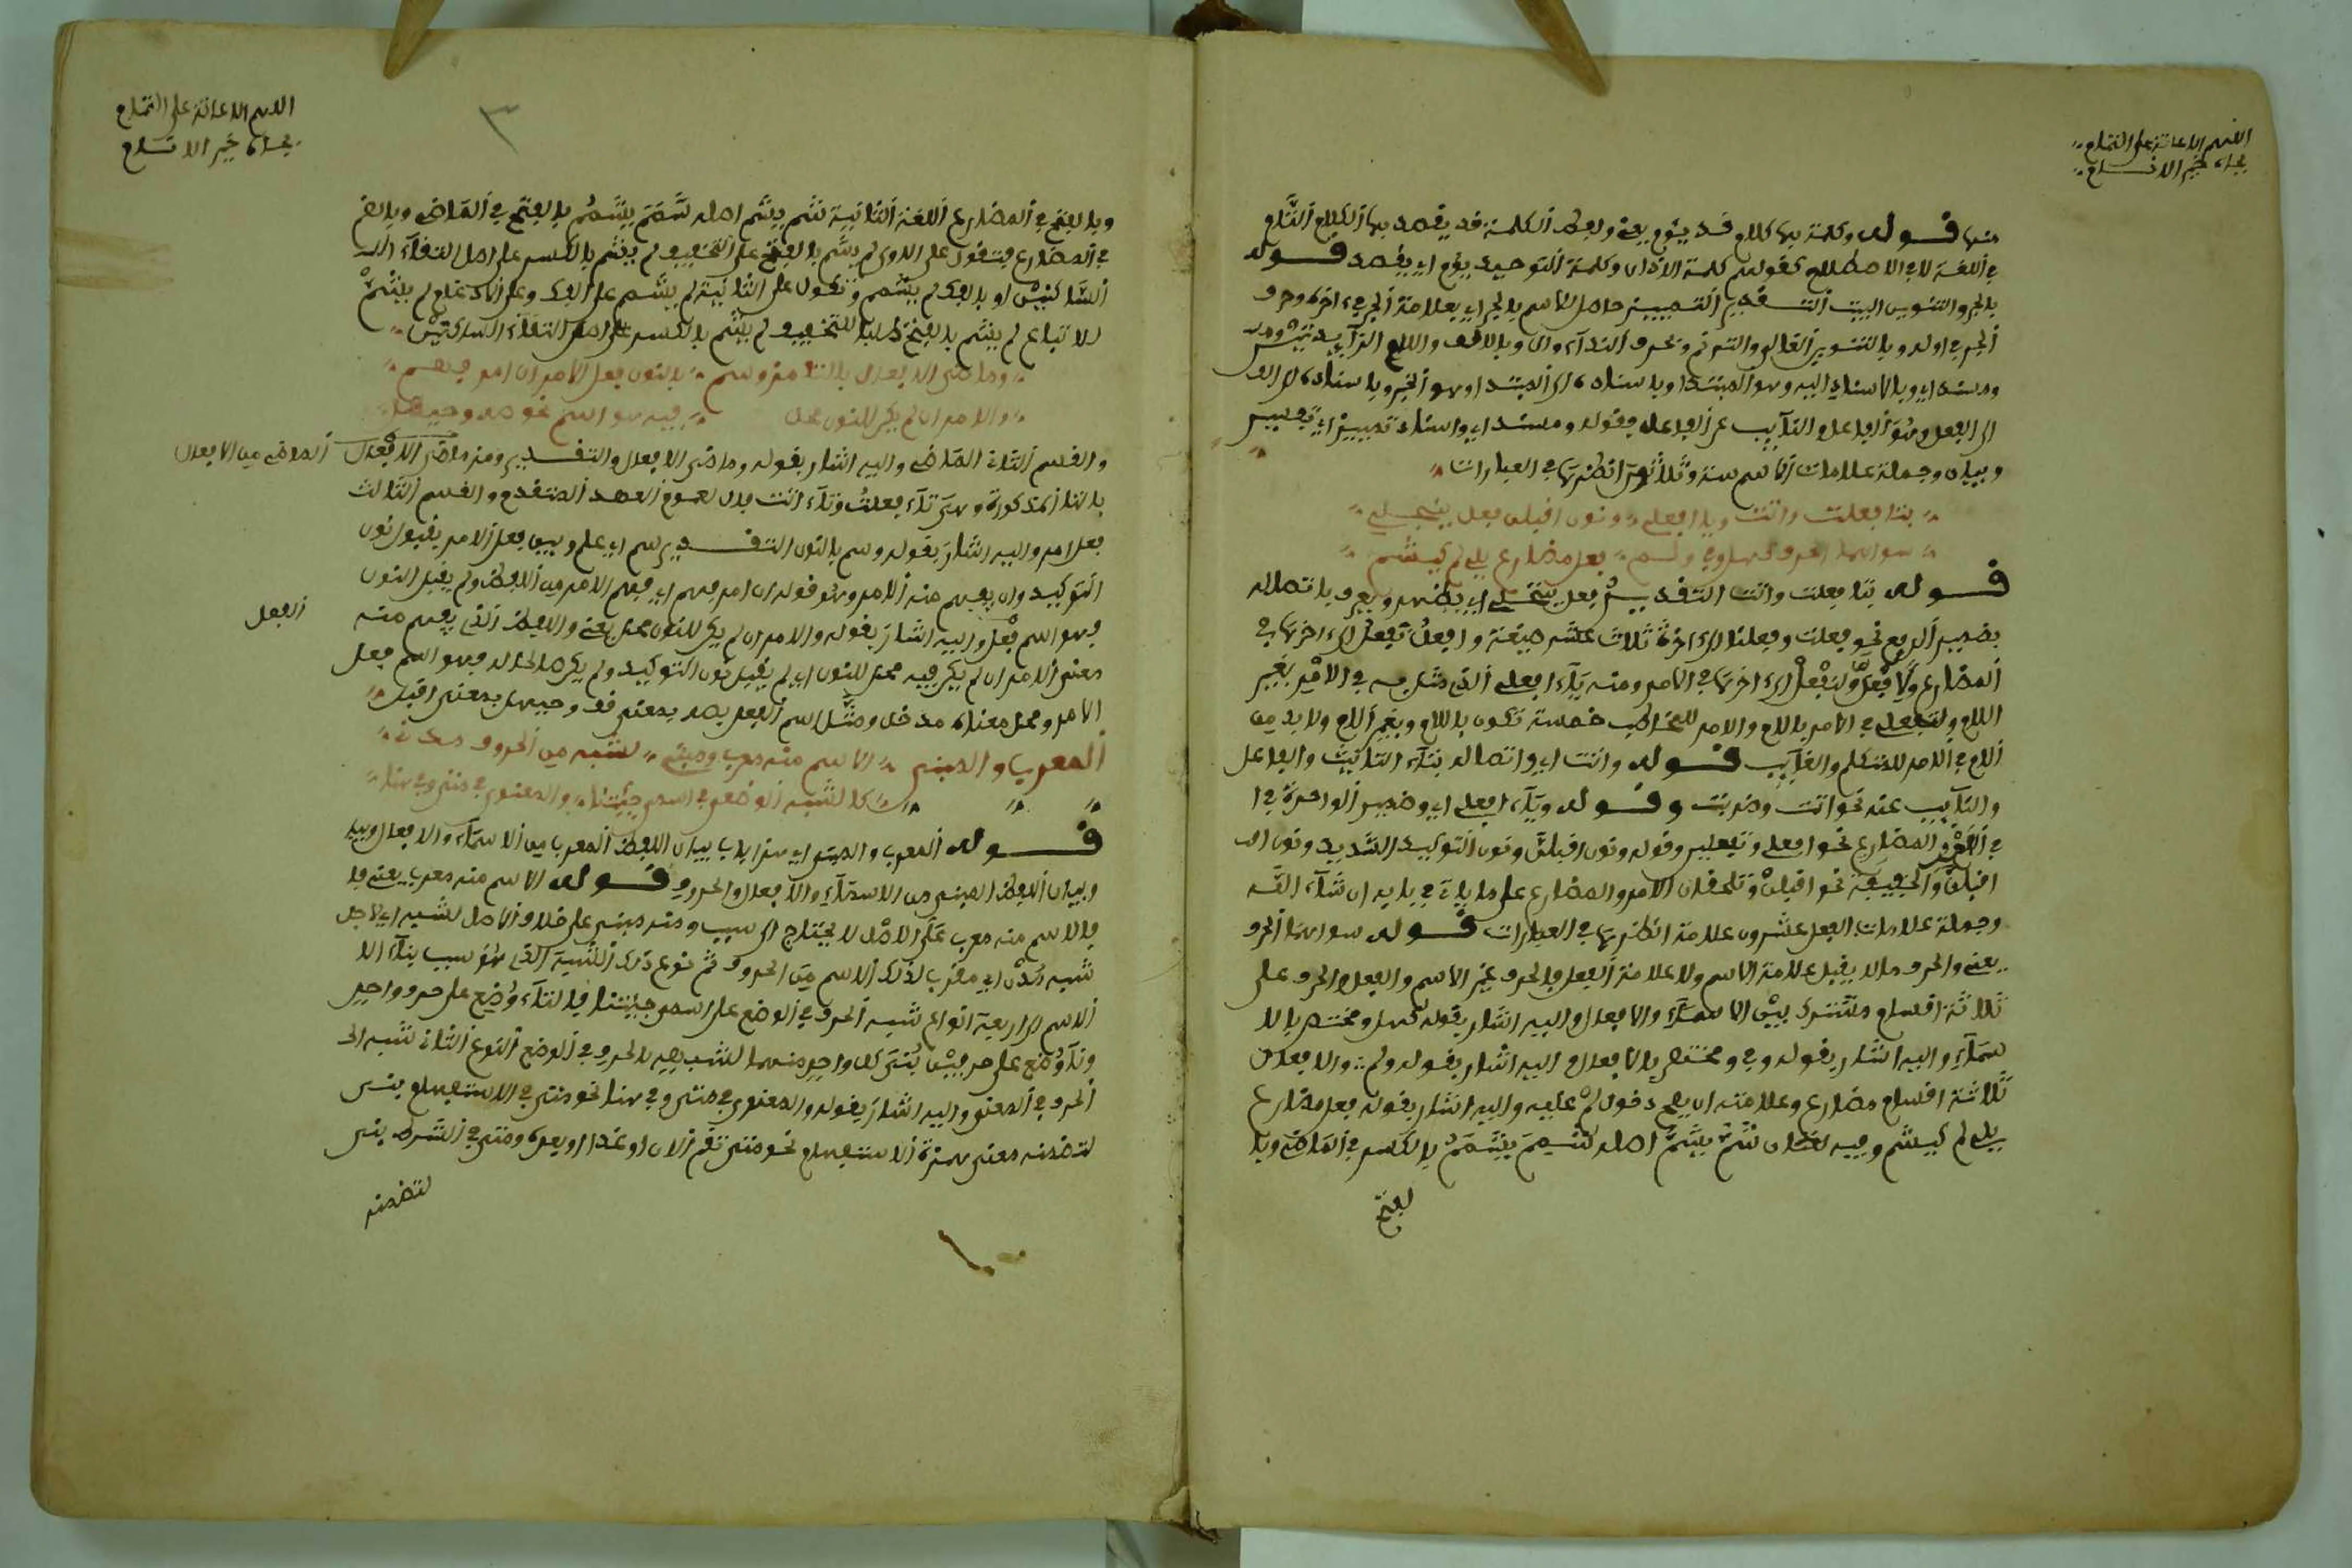 اللهم الاعانة على التمام
بجاه خير الانام
منها قوله وكلمة بها كلام قد يؤم يعني ولفظ الكلمة قد يقصد بها الكلام التام
في اللغة لا في الاصطلاح كقولهم كلمة الاذان وكلمة التوحيد يؤم اي يقصد قوله
بالجر والتنوين البيت التقدير التمييز حاصل للاسم بالجر اي بعلامة الجر في اخره وحرف
الجر في اوله وبالتنوين الغالي والترنم وبحرف النداء وال وبالالف واللام الزائدتين
ومسند اي وبالاسناد اليه وهو المبتدا وباسناده الى المبتدا وهو الخبر وباسناده
الى الفعل وهو الفاعل والنائب عن الفاعل فقوله ومسند اي واسناد تمييز اي تفسير
وبيان وجملة علامات الاسم ستة وثلاثون انظرها في العبارات
بتا فعلت واتت ويا افعلي ونون اقبلن فعل ينجلي
سواهما الحرف كهل وفي ولم فعل مضارع يلي لم كيشم
قوله بتا فعلت واتت التقدير فعل ينجلي اي يظهر ويعرف باتصاله
بضمير الرفع نحو فعلت وفعلنا الى اخره ثلاث عشر صيغة وافعل تفعل الى اخرها في
المضارع ولا فعل ولتفعل الى اخرها في الامر ومنه ياء افعلي التي مثل به في الامر بغير
اللام ولتفعلي في الامر باللام والامر للمخاطب خمسة تكون باللام وبغير اللام ولا بد من
اللام في الامر للمتكلم والغائب قوله واتت اي واتصاله بتاء التانيث والفاعل
والنائب عنه نحو اتت وضربت وقوله وياء افعلي اي وضمير الواحدة في
في الامر والمضارع نحو افعلي وتفعلين وقوله ونون اقبلن ونون التوكيد الشديد ونون
اقبلن والخفيفة نحو اقبلن وتلحقان الامر والمضارع على ما ياتي في بابه ان شاء الله
وجملة علامات الفعل عشرون علامة انظرها في العبارات قوله سواهما الحرف
يعني والحرف ما لا يقبل علامة الاسم ولا علامة الفعل فالحرف غير الاسم والفعل والحرف على
ثلاثة اقسام مشترك بين الاسماء والافعال واليه اشار بقوله كهل ومختص بالا
سماء واليه اشار بقوله وفي ومختص بالافعال واليه اشار بقوله ولم والافعال
ثلاثة اقسام مضارع وعلامته ان يصح دخول لم عليه واليه اشار بقوله فعل مضارع
يلي لم كيشم وفيه لغتان شم يشم اصله شمم يشمم بالكسر في الماضي وبا
لفتح
اللهم الاعانة على التمام
بجاه خير الانام
٣
وبالفتح في المضارع اللغة الثانية شم يشم اصله شمم يشمم بالفتح في الماضي وبالضم
في المضارع فتقول على الاولى لم يشم بالفتح على التخفيف لم يشم بالكسر على اصل التقاء
الساكنين او بالفك لم يشمم وتكول على الثانية لم يشم على الفك وعلى الادغام لم يشم
للاتباع لم يشم بالفتح طلبا للتخفيف لم يشم بالكسر على اصل التقاء الساكنين
وماضي الافعال بالتا مز وسم بالنون فعل الامر ان امر فهم
والامر ان لم يك للنون محل فيه هو اسم نحو صه وحيهل
والقسم الثاني الماضي واليه اشار بقوله وماضي الافعال والتقدير ومز ماضي الافعال الماضي من الافعال
بالتا المذكورة وهي تاء فعلت وتاء اتت فال لعموم العهد المتقدم والقسم الثالث
فعل امر واليه اشار بقوله وسم بالنون التقدير سم اي علم وبين فعل الامر بقبول نون
التوكيد وان يفهم منه الامر وهو قوله ان امر فهم اي فهم الامر من اللفظ ولم يقبل النون
فهو اسم فعل واليه اشار بقوله والامر ان لم يك للنون محل يعني واللفظ الذي يفهم منه الفعل
معنى الامر ان لم يكن فيه محل للنون اي لم يقبل نون التوكيد ولم يكن صالحا له فهو اسم فعل
الامر ومحل معناه مدخل ومثل اسم الفعل بصه بمعنى قف وحيهل بمعنى اقبل
المعرب والمبني الاسم منه معرب ومبني لشبه من الحروف مدني
كالشبه الوضعي في اسمي جئتنا والمعنوي في متى وفي هنا
قوله المعرب والمبني اي هذا باب بيان اللفظ المعرب من الاسماء والافعال وبيا
وبيان اللفظ المبني من الاسماء والافعال والحروف قوله الاسم منه معرب يعني فا
فالاسم منه معرب على الاصل لا يحتاج الى سبب ومنه مبني على خلاف الاصل لشبه اي لاجل
شبه مدن اي مقرب لذلك الاسم من الحروف ثم نوع ذلك الشبه الذي هو سبب بناء الا
الاسم الى اربعة انواع شبه الحرف في الوضع على اسمي جئتنا فالتاء وضع على حرف واحد
ونا وضع على حرفين بني كل واحد منهما لشبهه بالحرف في الوضع النوع الثاني شبه الى
الحرف في المعنى واليه اشار بقوله والمعنوي في متى وفي هنا نحو متى في الاستفهام بني
لتضمنه معنى همزة الاستفهام نحو متى تقم الان او غدا او بعده ومتى في الشرط بني
لتضمنه